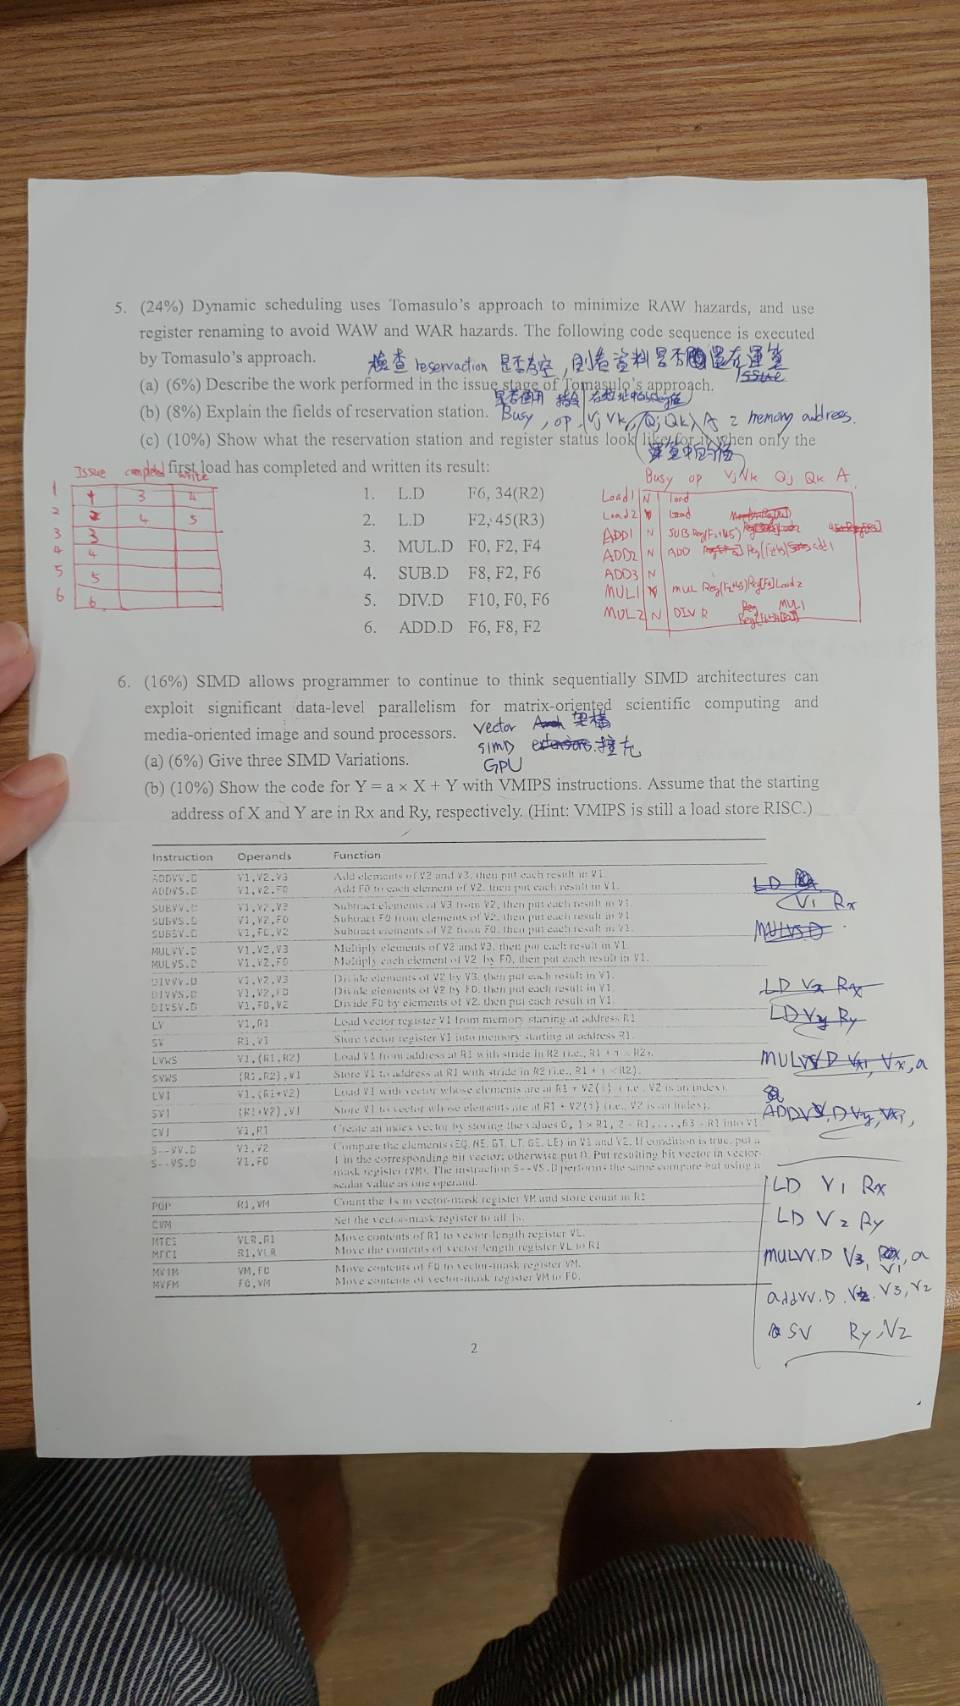 5. (24%) Dynamic scheduling uses Tomasulo's approach to minimize RAW hazards, and use
register renaming to avoid WAW and WAR hazards. The following code sequence is executed
by Tomasulo's approach.
檢查 reservaction 是否為空,則看資料是否還在運算
Issue
(a) (6%) Describe the work performed in the issue stage of Tomasulo's approach.
是否使用 指令
(b) (8%) Explain the fields of reservation station. Busy, op, (Vj Vk, (Qj, Qk) A = memory address.
(c) (10%) Show what the reservation station and register status look like for it when only the
first load has completed and written its result:
Issue completed write
1 1 3 4
2 2 4 5
3 3
4 4
5 5
6 6
1. L.D F6, 34(R2)
2. L.D F2, 45(R3)
3. MUL.D F0, F2, F4
4. SUB.D F8, F2, F6
5. DIV.D F10, F0, F6
6. ADD.D F6, F8, F2
Busy op Vj Vk Qj Qk A
Load1 N load
Load2 load
ADD1 N SUB
ADD2 N ADD
ADD3 N
MUL1 MUL Load2
MUL2 N DIV MUL1
6. (16%) SIMD allows programmer to continue to think sequentially SIMD architectures can
exploit significant data-level parallelism for matrix-oriented scientific computing and
media-oriented image and sound processors.
vector 架構
SIMD 擴充
GPU
(a) (6%) Give three SIMD Variations.
(b) (10%) Show the code for Y = a × X + Y with VMIPS instructions. Assume that the starting
address of X and Y are in Rx and Ry, respectively. (Hint: VMIPS is still a load store RISC.)
Instruction Operands Function
ADDVV.D V1,V2,V3 Add elements of V2 and V3, then put each result in V1.
ADDVS.D V1,V2,F0 Add F0 to each element of V2, then put each result in V1.
SUBVV.D V1,V2,V3 Subtract elements of V3 from V2, then put each result in V1.
SUBVS.D V1,V2,F0 Subtract F0 from elements of V2, then put each result in V1.
SUBSV.D V1,F0,V2 Subtract elements of V2 from F0, then put each result in V1.
MULVV.D V1,V2,V3 Multiply elements of V2 and V3, then put each result in V1.
MULVS.D V1,V2,F0 Multiply each element of V2 by F0, then put each result in V1.
DIVVV.D V1,V2,V3 Divide elements of V2 by V3, then put each result in V1.
DIVVS.D V1,V2,F0 Divide elements of V2 by F0, then put each result in V1.
DIVSV.D V1,F0,V2 Divide F0 by elements of V2, then put each result in V1.
LV V1,R1 Load vector register V1 from memory starting at address R1.
SV R1,V1 Store vector register V1 into memory starting at address R1.
LVWS V1,(R1,R2) Load V1 from address at R1 with stride in R2 (i.e., R1 + i × R2).
SVWS (R1,R2),V1 Store V1 to address at R1 with stride in R2 (i.e., R1 + i × R2).
LVI V1,(R1+V2) Load V1 with vector whose elements are at R1 + V2(i) (i.e., V2 is an index).
SVI (R1+V2),V1 Store V1 to vector whose elements are at R1 + V2(i) (i.e., V2 is an index).
CVI V1,R1 Create an index vector by storing the values 0, 1 × R1, 2 × R1,...,63 × R1 into V1.
S--VV.D V1,V2 Compare the elements (EQ, NE, GT, LT, GE, LE) in V1 and V2. If condition is true, put a
S--VS.D V1,F0 1 in the corresponding bit vector; otherwise put 0. Put resulting bit vector in vector-
mask register (VM). The instruction S--VS.D performs the same compare but using a
scalar value as one operand.
POP R1,VM Count the 1s in vector-mask register VM and store count in R1.
CVM Set the vector-mask register to all 1s.
MTC1 VLR,R1 Move contents of R1 to vector-length register VL.
MFC1 R1,VLR Move the contents of vector-length register VL to R1.
MVTM VM,F0 Move contents of F0 to vector-mask register VM.
MVFM F0,VM Move contents of vector-mask register VM to F0.
LD
V1 Rx
MULVS D
LD Vx Rx
LD Vy Ry
LD V1 Rx
LD V2 Ry
MULVV.D V3, V1, a
addVV.D V2, V3, V2
SV Ry, V2
2